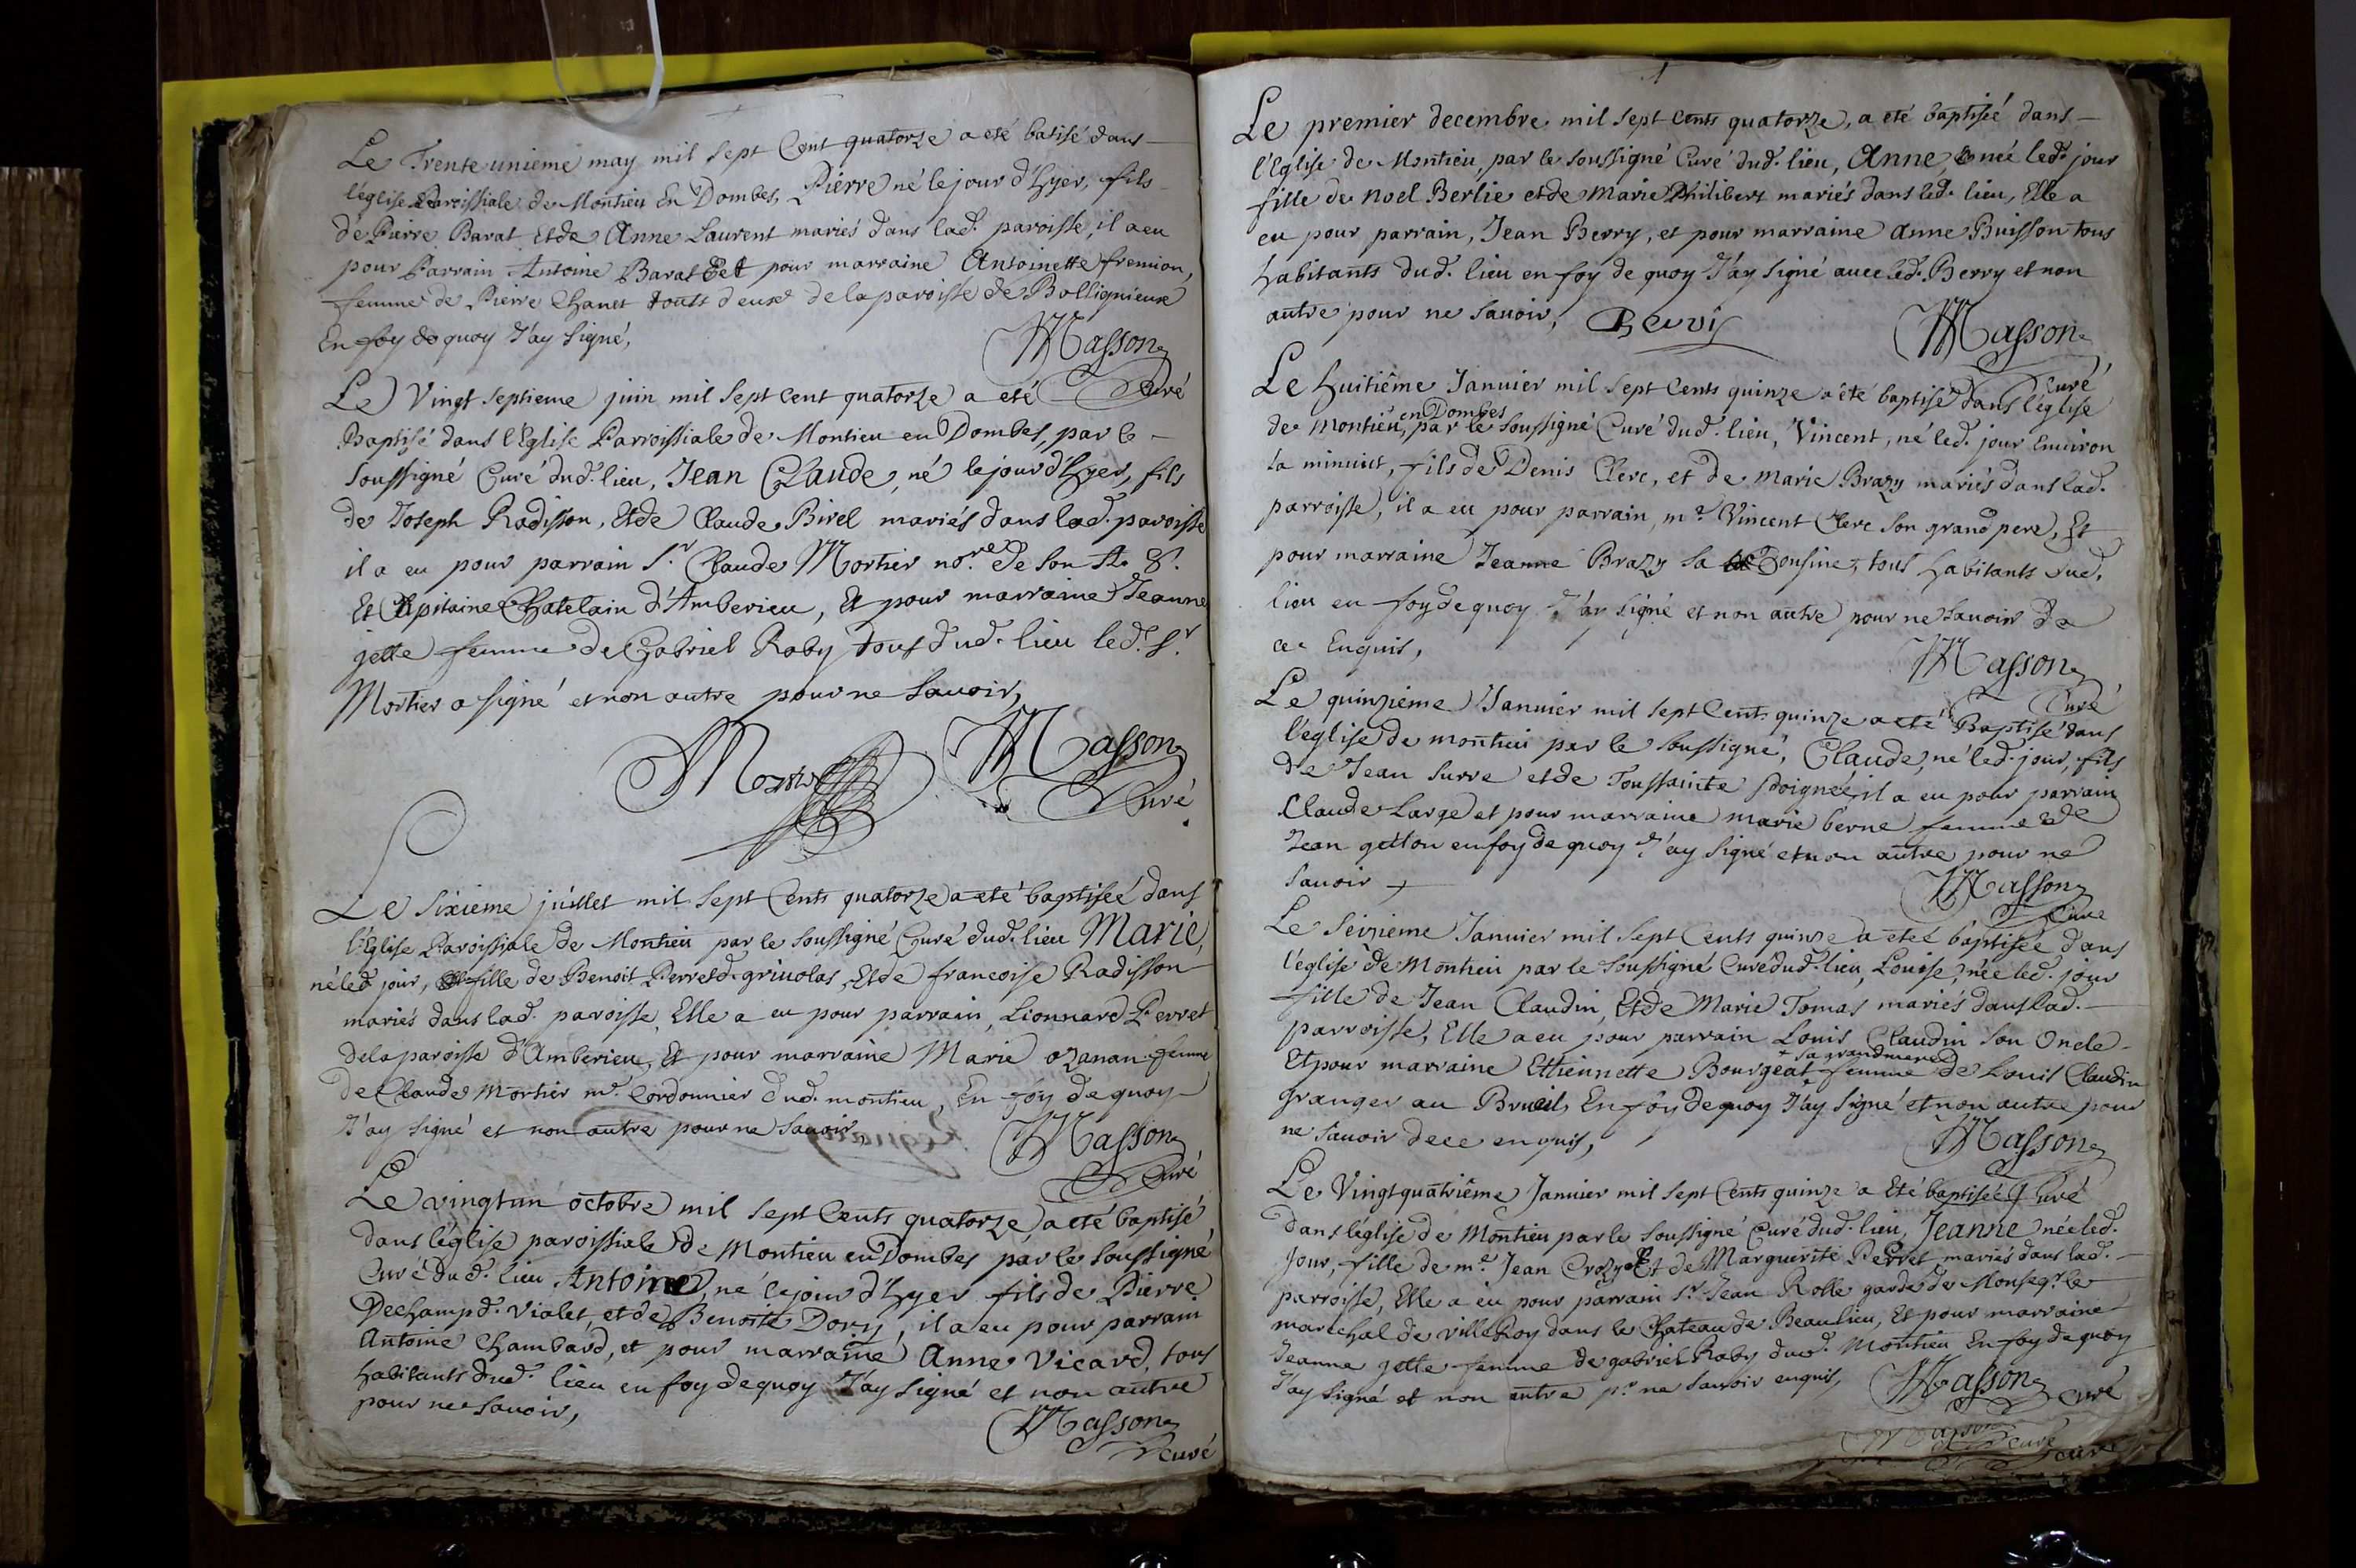 Le Trente unieme may mil sept Cent quatorze a eté batisé dans
l'église Paroissiale de Montieu En Dombes, Pierre né le jour d'hyer, fils
de Pierre Barat et de Anne Laurent mariés dans lad. paroisse, il a eu
pour Parrain Antoine Barat Et pour marraine Antoinette fremion,
femme de Pierre Chanet touts deux de la paroisse de Bollignieux
En foy de quoy J'ay signé,
Masson
Curé
Le Vingt septieme juin mil sept cent quatorze a eté
Baptisé dans l'Eglise Parroissiale de Montieu en Dombes, par le
soussigné Curé dud. lieu, Jean Claude, né le jour d'hyer, fils
de Joseph Radisson, Et de Claude Birel mariés dans lad. paroisse
il a eu pour parrain Sr. Claude Mortier nore. de son A. S.
Et Capitaine Chatelain d'Amberieu, Et pour marraine Jeanne
jette femme de Gabriel Raby tous dud. lieu led. Sr.
Mortier a signé et non autre pour ne savoir,
Mortier Masson
Curé
Le sixieme juillet mil sept Cents quatorze a eté baptisée dans
l'Eglise Paroissiale de Montieu par le soussigné Curé dud. lieu Marie,
né led jour, fille de Benoit Perret d. griuolas, Et de francoise Radisson
mariés dans lad. paroisse, Elle a eu pour parrain, Lionnard Perret
de la paroisse d'Amberieu, Et pour marraine Marie ozanan femme
de Claude Mortier me. Cordonnier dud. montieu, En foy de quoy
J'ay signé et non autre pour ne savoir,
Masson
Curé
Le vingt un octobre mil sept Cents quatorze a eté baptisé
dans l'église paroissiale de Montieu en Dombes par le soussigné
Curé dud. lieu Antoine, né le jour d'hyer fils de Pierre
Dechamp d. Vialet, et de Benoite Dory, il a eu pour parrain
Antoine Chambard, et pour marraine Anne Vicard, tous
habitants dud. lieu en foy de quoy J'ay signé et non autre
pour ne savoir,
Masson
Curé
1
Le premier decembre mil sept cents quatorze, a eté baptisée dans
l'Eglise de Montieu, par le soussigné Curé dud. lieu, Anne, née led. jour
fille de Noel Berlie et de Marie Philibert mariés dans led. lieu, Elle a
eu pour parrain, Jean Berry, et pour marraine Anne Buisson tous
habitants dud. lieu en foy de quoy J'ay signé avec led. Berry et non
autre pour ne savoir,
Masson
Curé
Le huitième Janvier mil sept Cents quinze a été baptisé dans l'église
de Montieu, en Dombes par le soussigné Curé dud. lieu, Vincent, né led. jour Environ
la minuict, fils de Denis Clerc, et de Marie Brazy mariés dans lad.
parroisse, il a eu pour parrain, me. Vincent Clerc son grand pere, Et
pour marraine Jeanne Brazy sa Cousine, tous habitants dud.
lieu en foy de quoy J'ay signé et non autre pour ne savoir de
ce Enquis,
Masson
Curé
Le quinzieme Janvier mil sept Cents quinze a eté Baptisé dans
l'église de montieu par le soussigné, Claude, né led. jour, fils
de Jean Surre et de Toussainte Poignée, il a eu pour parrain
Claude Large et pour marraine marie berne femme de
Jean getton en foy de quoy J'ay signé et non autre pour ne
savoir
Masson
Curé
Le seizieme Janvier mil sept Cents quinze a eteé baptisée dans
l'église de Montieu par le soussigné Curé dud. lieu, Louise, née led. jour
fille de Jean Claudin, Et de Marie Tomas mariés dans lad.
parroisse, Elle a eu pour parrain Louis Claudin son Oncle
Et pour marraine Ettiennette Bourgeat + sa grandmere femme de Louis Claudin
granger au Brueil, En foy de quoy J'ay signé et non autre pour
ne savoir de ce enquis,
Masson
Curé
Le Vingtquatrième Janvier mil sept Cents quinze a Eté baptisée
dans l'église de Montieu par le soussigné Curé dud. lieu, Jeanne née led.
Jour, fille de me. Jean Crozy Et de Marguerite Perret mariés dans lad.
parroisse, Elle a eu pour parrain Sr. Jean Rolle garde de Monsegr. le
maréchal de VilleRoy dans le Chateau de Beaulieu, Et pour marraine
Jeanne jette femme de gabriel Raby dud. Montieu En foy de quoy
J'ay signé et non autre pr. ne savoir enquis,
Masson
Curé